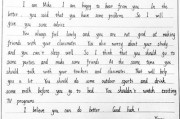 I am Mike. I am happy to hear from you. In the
letter, you said that you have some problems. So I will
give you some advice.
You always feel lonely and you are not good at making
friends with your classmates. You also worry about your study
and you can't sleep well. So I think that you should go to
some parties and make some friends. At the same time, you
should talk with your teachers and classmates. That will help
you a lot. You should do some outdoor sports and drink
some milk before you go to bed. You shouldn't watch exciting
TV programs.
I believe you can do better. Good luck!